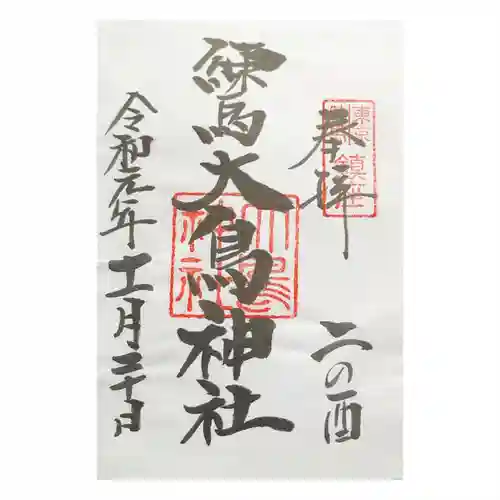 奉拝
二の酉
練馬大鳥神社
令和元年十一月二十日
大鳥
神社